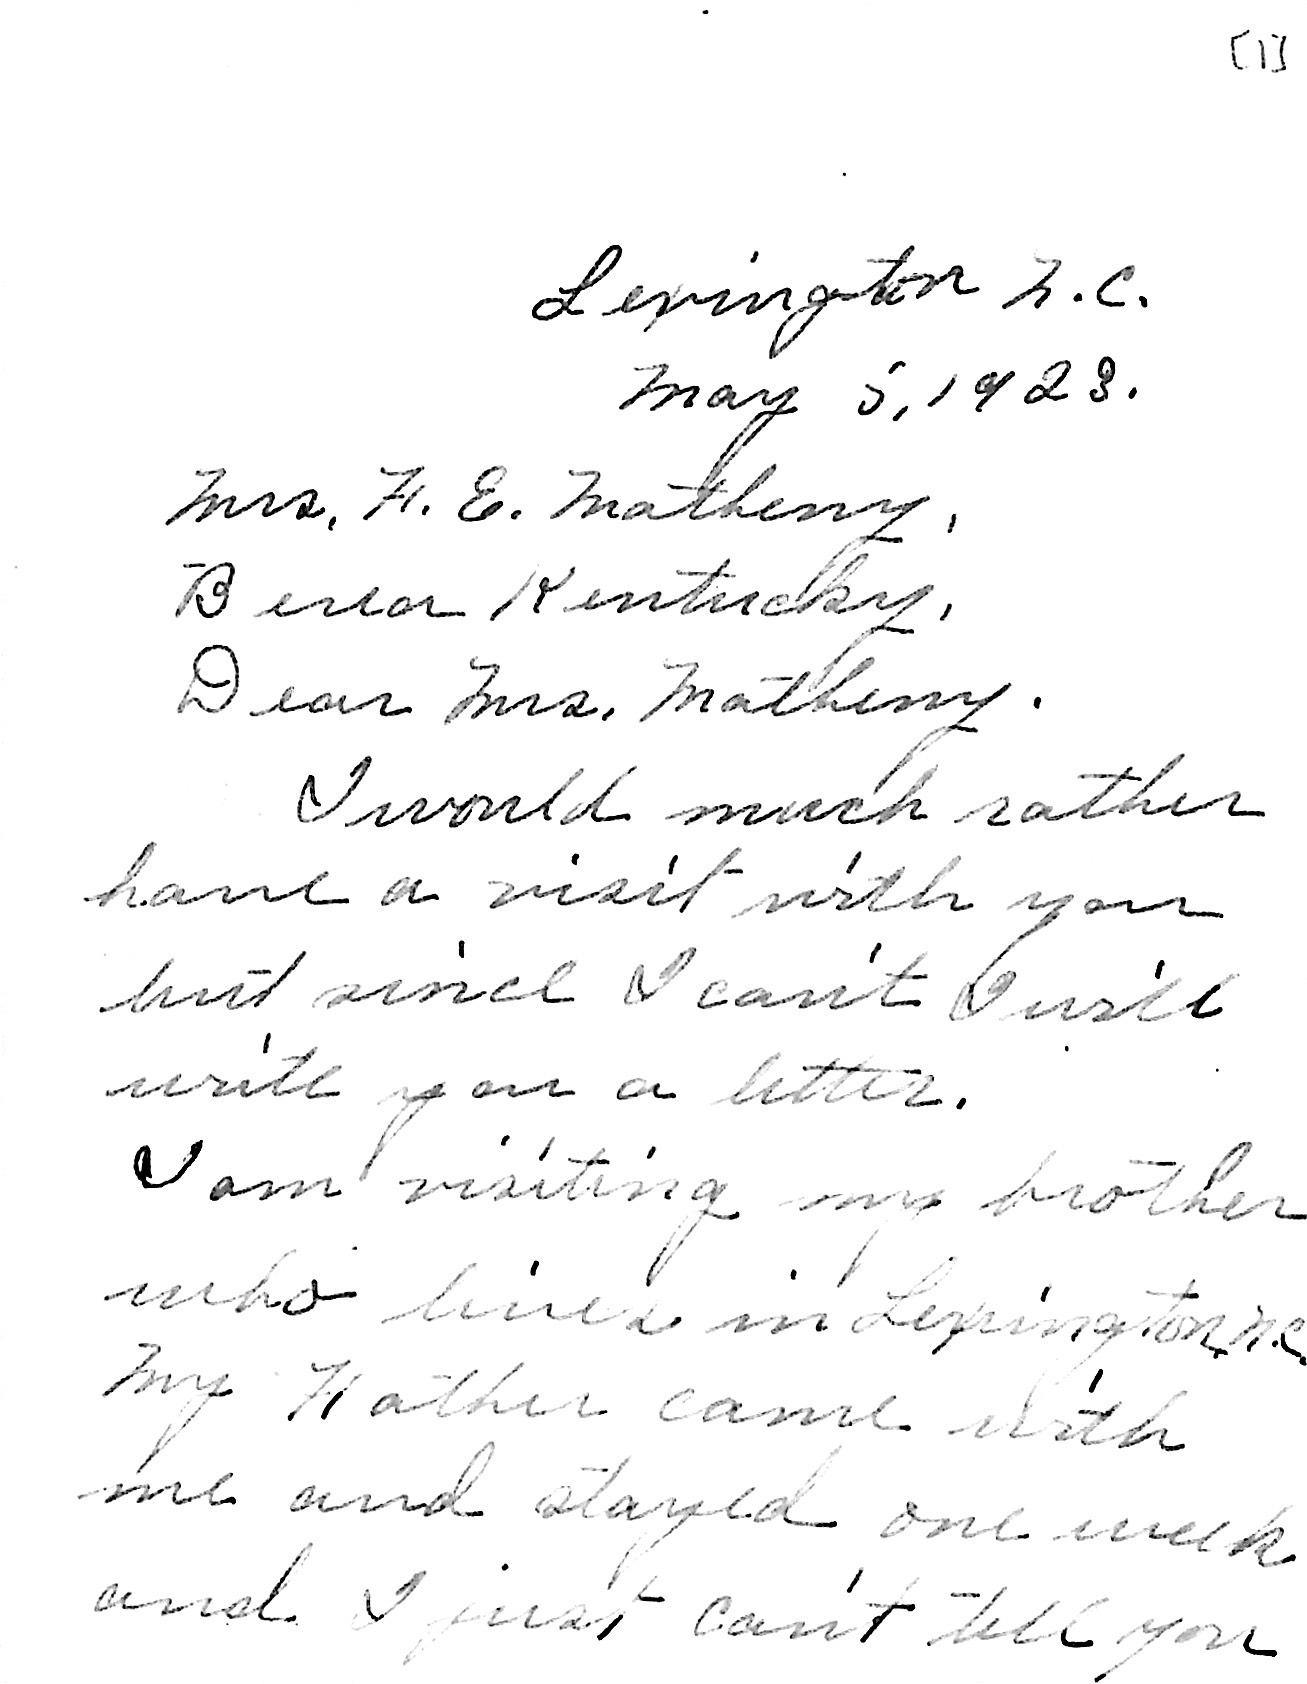 [1]
Lexington N.C.
May 5, 1923.
Mrs. F. E. Matheny,
Berea Kentucky,
Dear Mrs. Matheny.
I would much rather
have a visit with you
but since I can't I will
write you a letter.
I am visiting my brother
who lives in Lexington, N.C.
My Father came with
me and stayed one week
and I just can't tell you